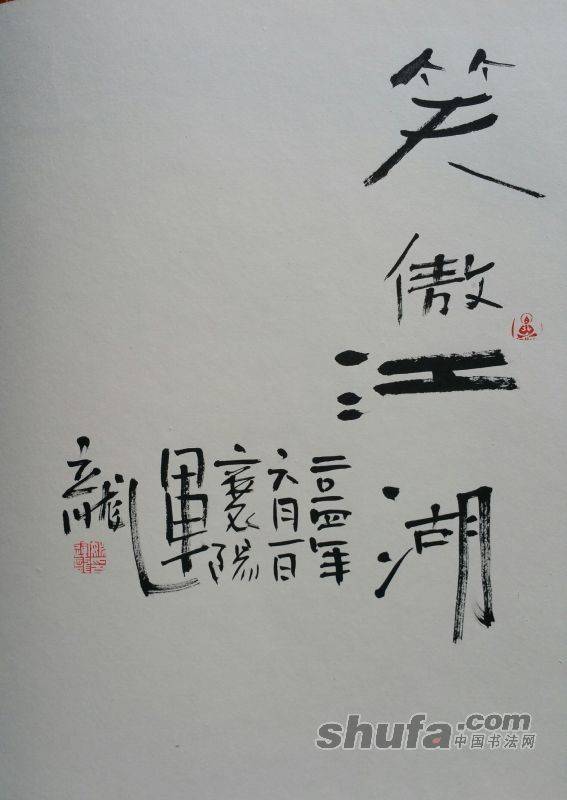 笑傲江湖
二〇一四年
六月一日
襄陽
運
龍
shufa.com
中国书法网